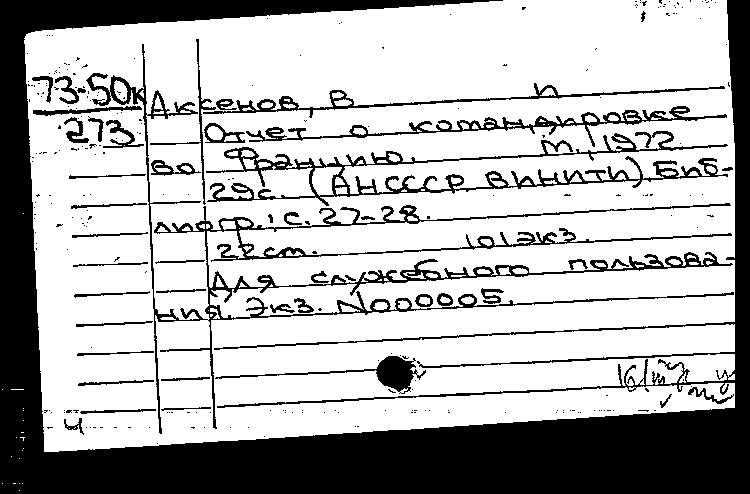 73-50к
273
Аксенов, В п
Отчет о командировке
во Францию. М., 1972
29с. (АНСССР. ВИНИТИ). Биб-
лиогр.: с. 27-28.
22см. 101экз.
Для служебного пользова-
ния. Экз. N000005.
ч